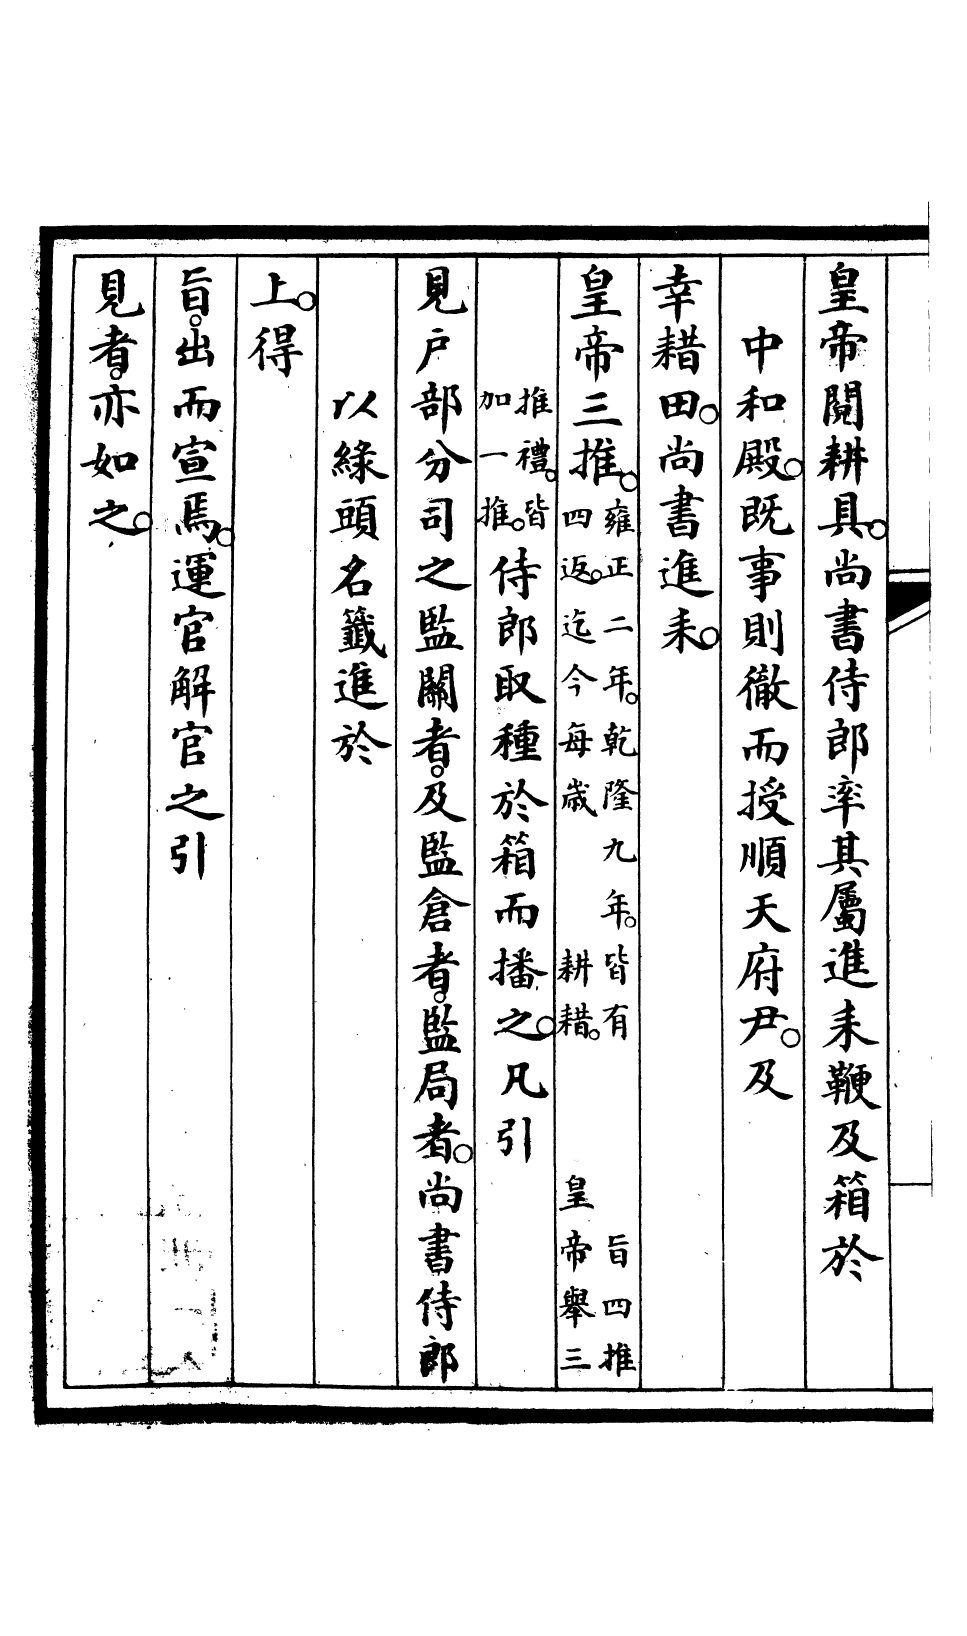 皇帝閱耕具。尚書侍郎率其屬進耒鞭及箱於
中和殿。既事則徹而授順天府尹。及
幸耤田。尚書進耒。
皇帝三推。雍正二年。乾隆九年。皆有 旨四推
四返。迄今每歲 耕耤。 皇帝舉三
推禮。皆
加一推。侍郎取種於箱而播之。凡引
見戶部分司之監關者。及監倉者。監局者。尚書侍郎
以綠頭名籤進於
上。得
旨。出而宣焉。運官解官之引
見者。亦如之。